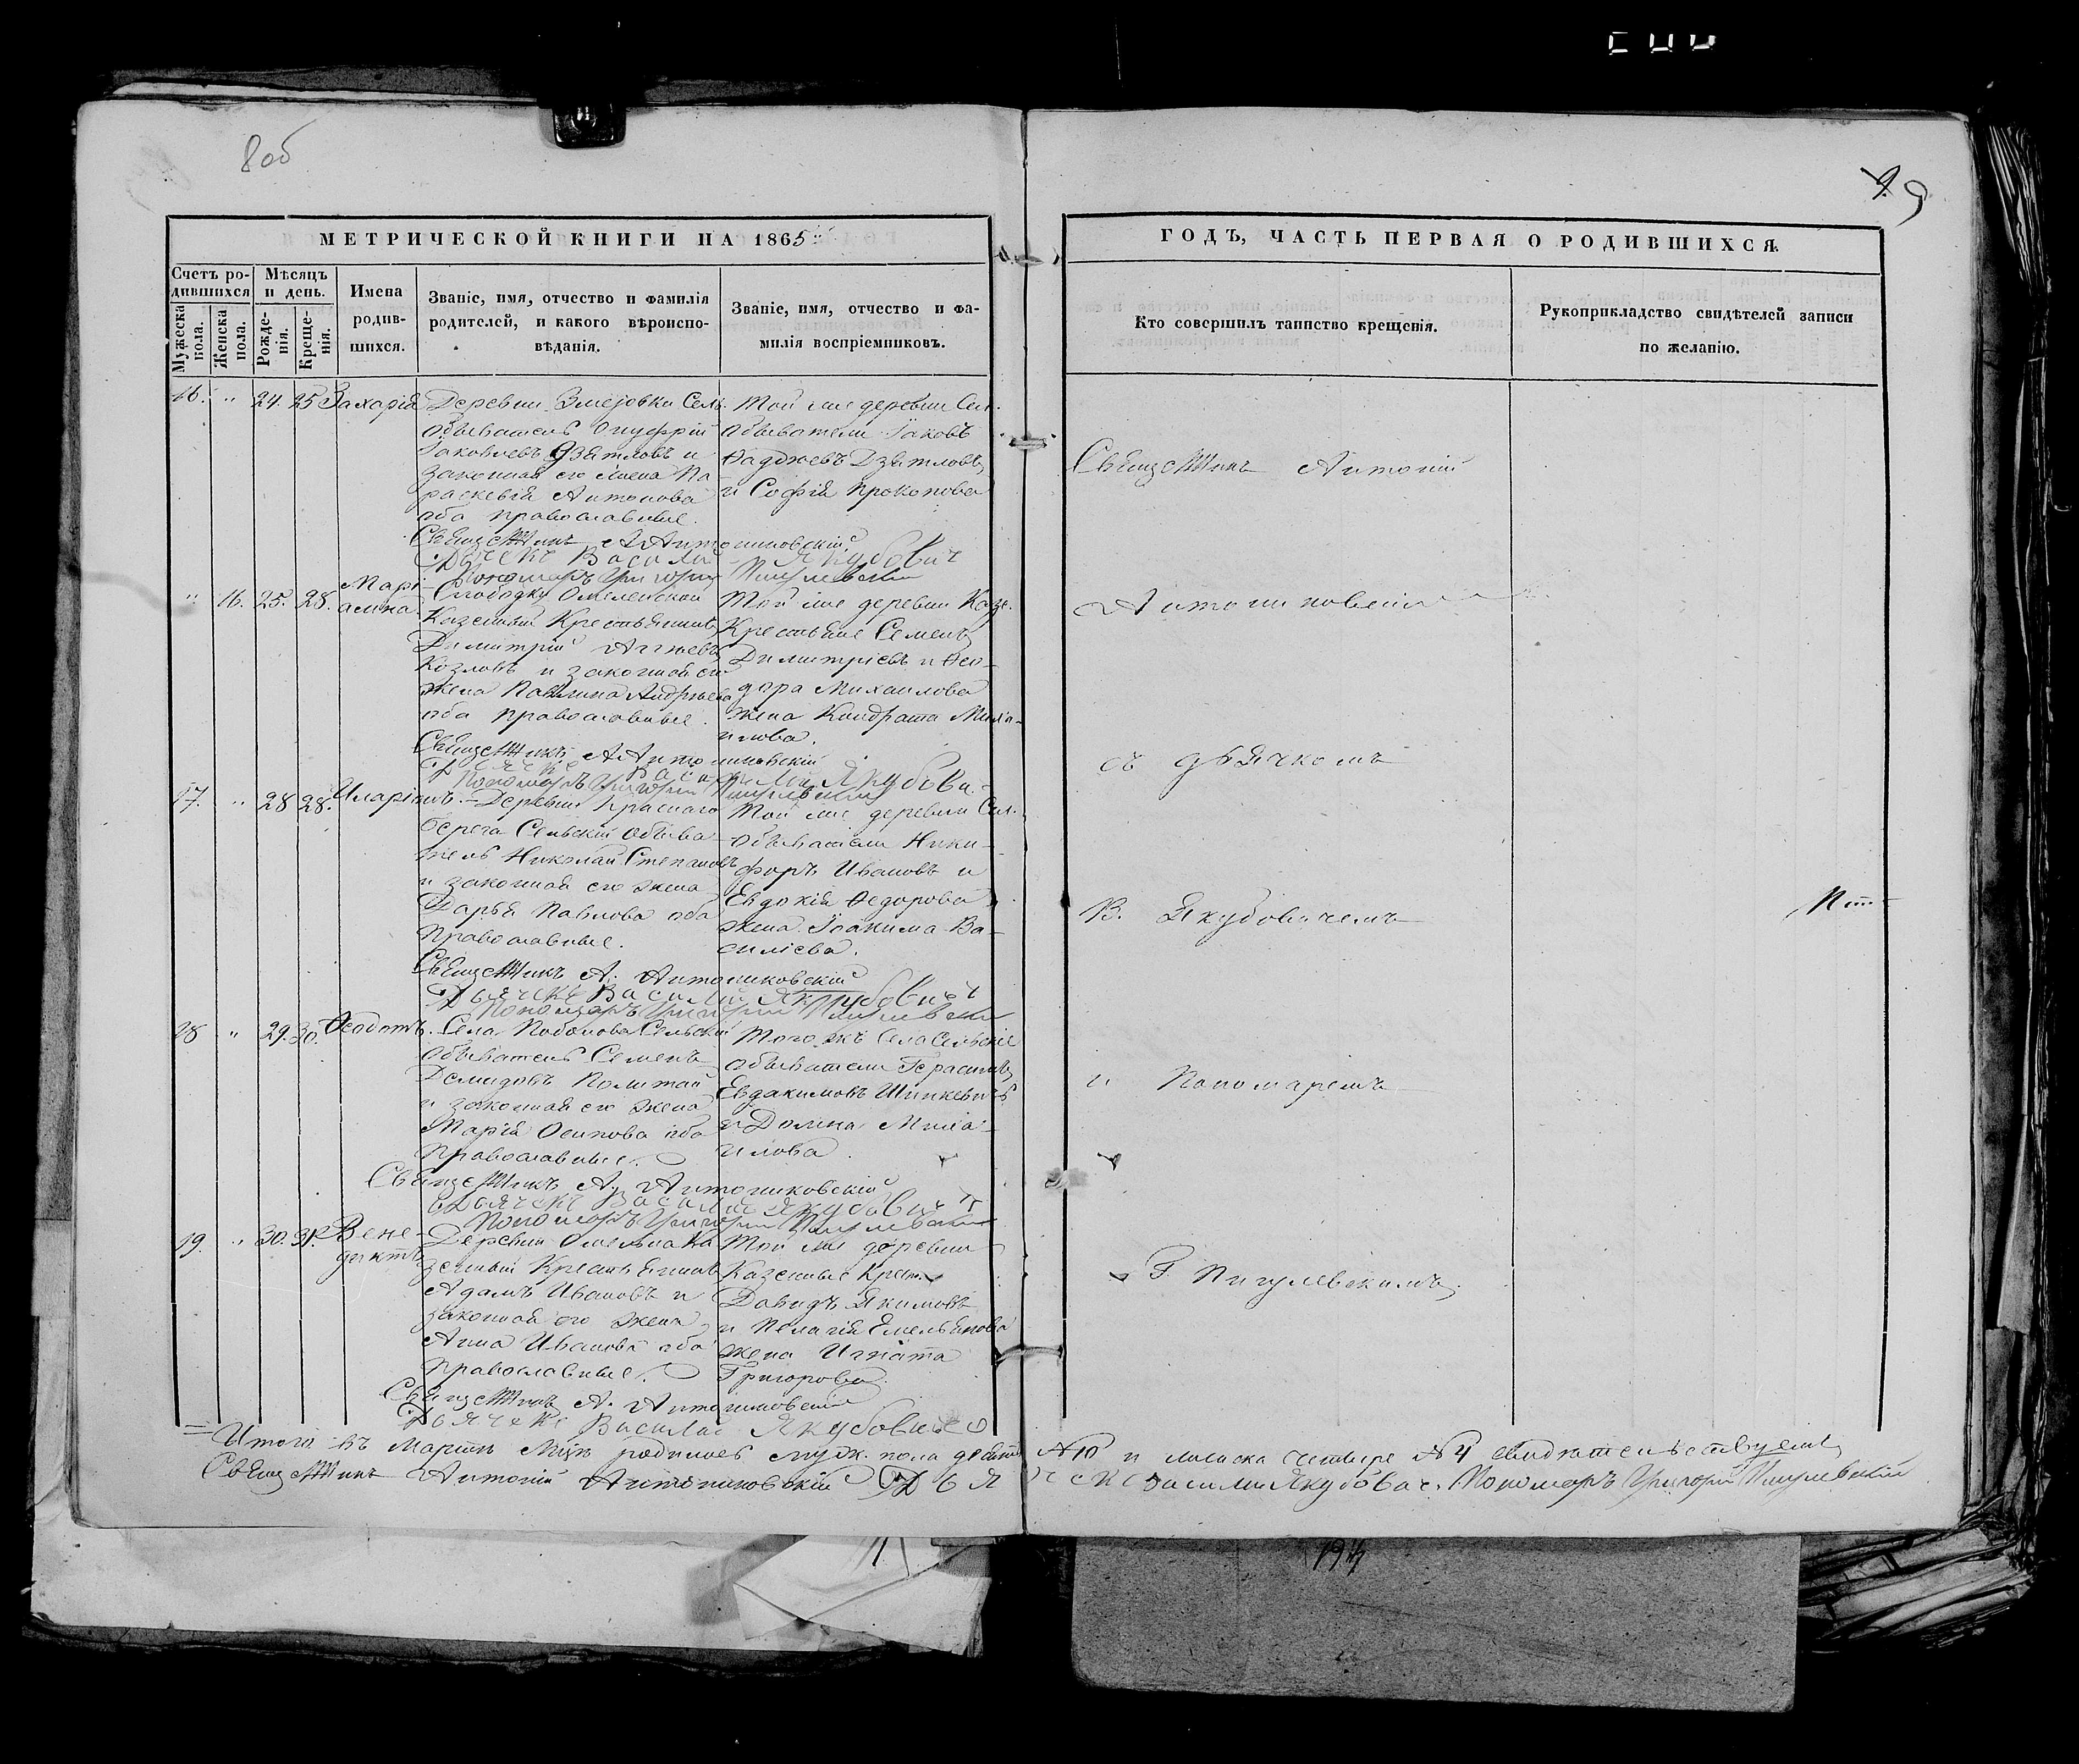 8 об
9
МЕТРИЧЕСКОЙ КНИГИ НА 1865
ГОДЪ, ЧАСТЬ ПЕРВАЯ О РОДИВШИХСЯ.
Счетъ ро-
дившихся
Мужеска
пола.
Женска
пола.
Мѣсяцъ
и день.
Рожде-
нія.
Креще-
нія.
Имена
родив-
шихся.
Званіе, имя, отчество и фамилія
родителей, и какого вѣроиспо-
вѣданія.
Званіе, имя, отчество и фа-
милія воспріемниковъ.
Кто совершилъ таинство крещенія.
Рукоприкладство свидѣтелей записи
по желанію.
16. " 24. 25 Захарія
Деревни Змеiовки Сель.
обыватель Онуфрій
Iаковлевъ Дзятловъ и
законная его жена Па
раскевія Антонова
оба православные.
Той же деревни Сел.
обыватели Iаковъ
Фаддѣевъ Дзятловъ
и Софія Прокопова
Священникъ А Антониковскій
Дьячекъ Василій Якубовичъ
Пономарь Григорій Пигулевскій
" 16. 25. 28. Марі
анна
Слободки Омеленской
Казенный Крестьянинъ
Димитрій
Козловъ и законная его
жена Павлина Андреева
оба православные.
Той же деревни Казе.
Крестьяне Семенъ
Димитріевъ и Ѳео-
дора Михаилова
жена Кондрата Миха-
илова.
Священникъ А Антониковскій
Дьячекъ Василій Якубови.
Пономарь Григорій Пигулевскій
17. " 28 28. Иларіонъ.
Деревни Краснаго
берега Сельскій Обыва
тель Николай Степановъ
и законная его жена
Дарья Павлова оба
Православные.
Той же деревни Сел.
обыватели Ники-
форъ Ивановъ и
Евдокія Ѳедорова
жена Iоакима Ва-
силіева.
Священникъ А. Антониковскій
Дьячекъ Василій Якубовичъ
Пономарь Григорій Пигулевскій
18 " 29. 30. Ѳеодотъ.
Села Побокова Сельскій
Обыватель Семенъ
Демидовъ
и законная его жена
Марія Осипова оба
православные.
Того жъ села Сельскіе
обыватели Герасимъ
Евдакимовъ Шинкевичъ
и Домна Миха-
илова.
Священникъ А. Антониковскій
Дьячекъ Василій Якубовичъ
Пономарь Григорій Пигулевскій
19. " 30. 31. Вене-
диктъ
Деревни Омельна Ка
зенный Крестьянинъ
Адамъ Ивановъ и
законная его жена
Анна Иванова оба
православные.
Той же деревни
Казенные Крест.
Давидъ Якимовъ
и Пелагія Емельянова
жена Игната
Григорова.
Священникъ А. Антониковскій
Дьячекъ Василій Якубовичъ
Священникъ Антоній
Антониковскій
съ дьячкомъ
В. Якубовичемъ
и Пономаремъ
Г. Пигулевскимъ.
Итого въ Мартѣ Мцѣ родилось муж. пола десять №10 и женска четыре №4 свидѣтельствуемъ
Священникъ Антоній Антониковскій Дьячекъ Василій Якубовичъ. Пономарь Григорій Пигулевскій